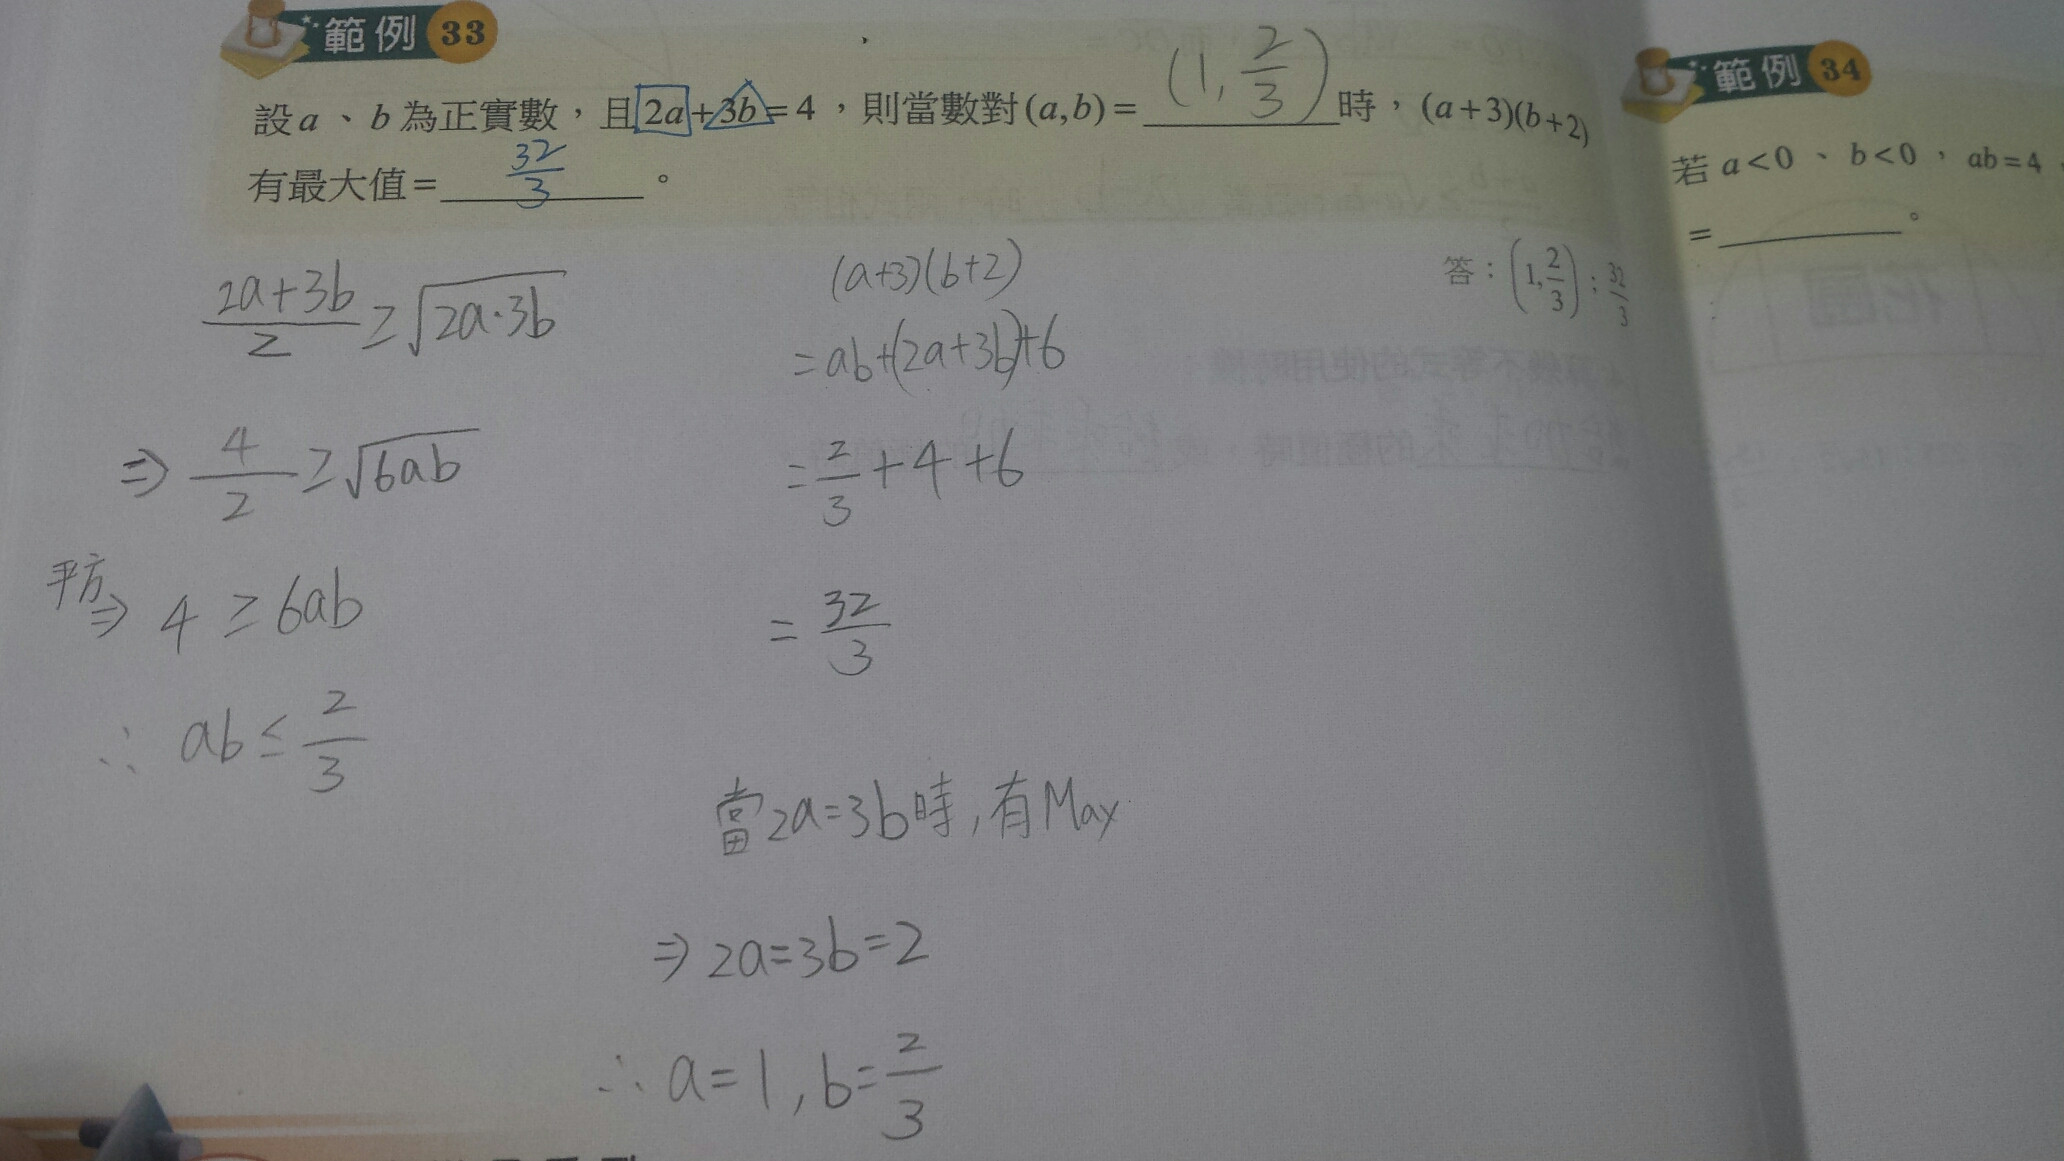 範例 33
設a、b為正實數，且2a+3b=4，則當數對(a,b)= (1, 2/3) 時，(a+3)(b+2)
有最大值= 32/3 。
答：(1, 2/3)；32/3
(2a+3b)/2 ≥ √(2a·3b)
⇒ 4/2 ≥ √(6ab)
平方⇒ 4 ≥ 6ab
∴ ab ≤ 2/3
(a+3)(b+2)
= ab+(2a+3b)+6
= 2/3 + 4 + 6
= 32/3
當2a=3b時,有Max
⇒ 2a=3b=2
∴ a=1, b=2/3
範例 34
若 a<0、b<0，ab=4
= 。